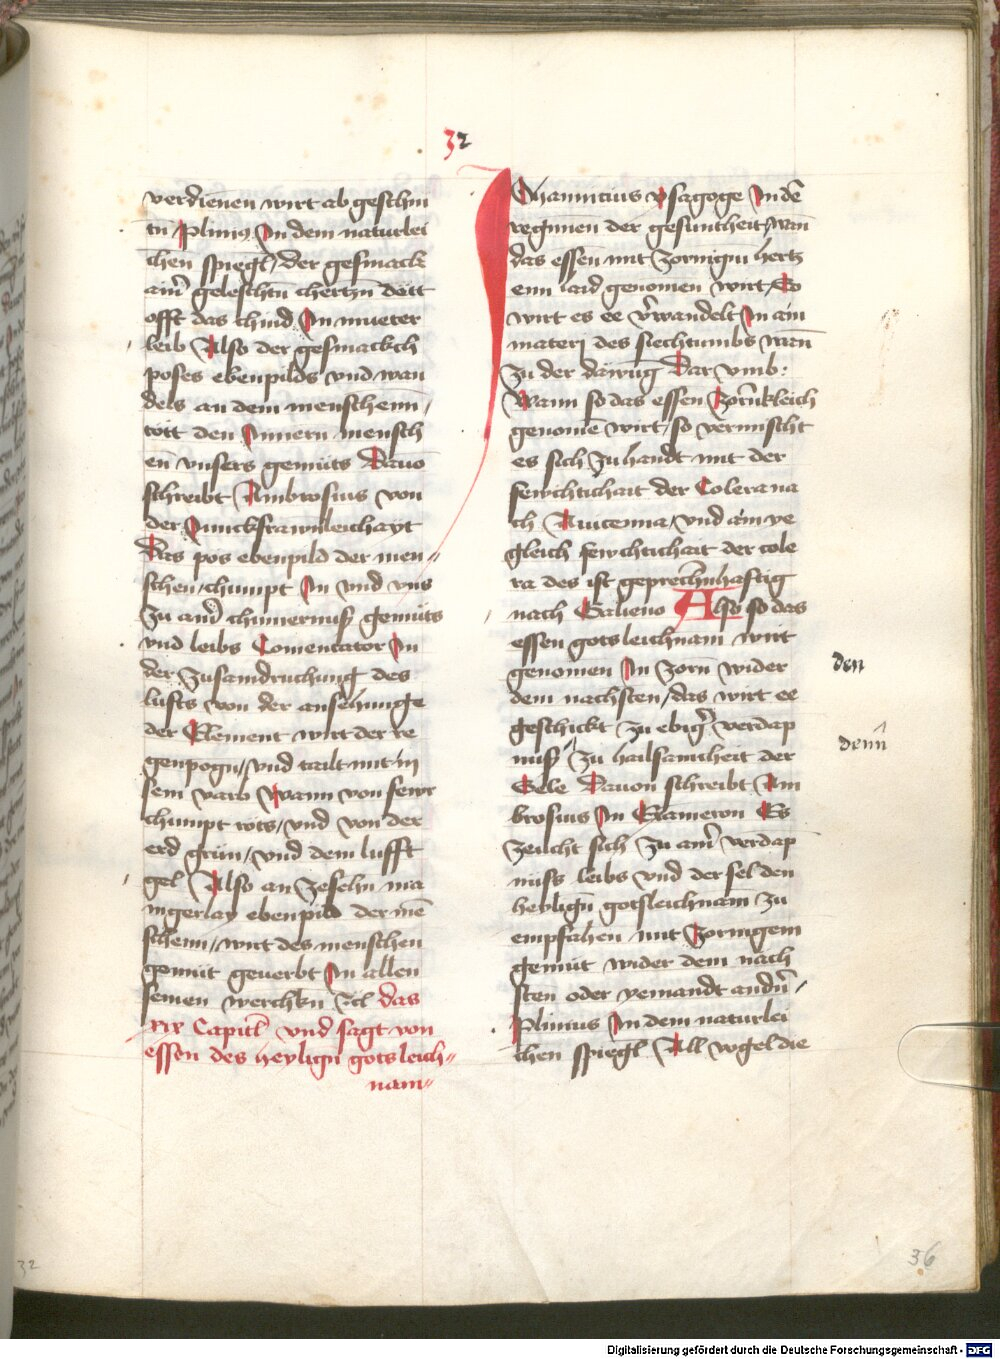 32
verdienen wirt ab geschni
tn̄ Plinius In dem naturlei
chen spiegl / der gesmack
aīr geleschtn̄ chertzn̄ dött
offt das chind In mueter
leib Also der gesmackch
poses ebenpilds vnd wan
dels an dem menschenn /
tött den Innern mensch
en vnsers gemüts Dauō
schreibt Ambrosius von
der Junckfrawnleichayt
Das pös ebenpild der men
schen / chumpt In vnd vns
zu andr̄ chumernuß gemüts
vnd leibs Comentator In
der zusamdruchung des
lufts von der ansehunge
der Element wirt der re
genpogn̄ / vnd tailt mit in
sein varb Wann von fewr
chumpt rots / vnd von der
erd grün / vnd dem lufft
gel Also an zesehn̄ ma
nigerlay ebenpild der mē
schenn / wirt des menschen
gemüt geuerbt In allen
seinen werchkn̄ Il das
xix Capitl̄ vnd sagt von
essen des heylign̄ gotsleich
nam
Ohannicius ysagoge In dē
regimen der gesuntheit / wan
das essen mit zornigm̄ hertz
enn laid genomen wirt / So
wirt es ee v̄wandelt In ain
materi des siechtumbs wan̄
zu der däwūg Dar vmb:
Wann so das essen zorn̄kleich
genomē wirt / so vermischt
es sich zuhandt mit der
fewchtichait der Colera na
ch Auicenna / vnd ain ye
gleich fewchtichait der cole
ra des ist geprechn̄haftig
nach Galieno Also so das
essen gotsleichnam wirt
genomen In zorn̄ wider
dem nachsten / das wirt ee
geschickt zu ebigr̄ verdāp
nuß / zu hailsamheit der
Sele Dauon schreibt Am
brosius In Exameron Es
zeucht sich zu aīr verdāp
nüss leibs vnd der sel den
heylign̄ gotsleichnām zu
empfahen mit zornigem
gemüt wider dem näch
sten oder yemandt andn̄ /
Plinius In dem naturlei
chen spiegl All vogel die
den
denn
32
36
Digitalisierung gefördert durch die Deutsche Forschungsgemeinschaft - DFG